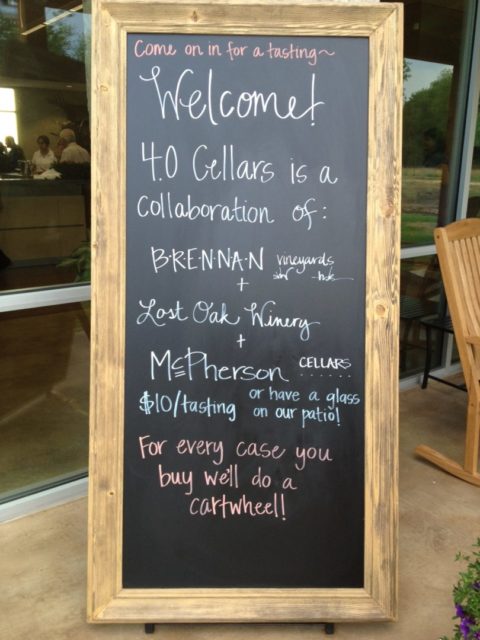 Come on in for a tasting~
Welcome!
4.0 Cellars is a
collaboration of:
B·R·E·N·N·A·N vineyards
+
Lost Oak Winery
+
McPherson CELLARS
$10/tasting or have a glass
on our patio!
For every case you
buy we'll do a
cartwheel!!